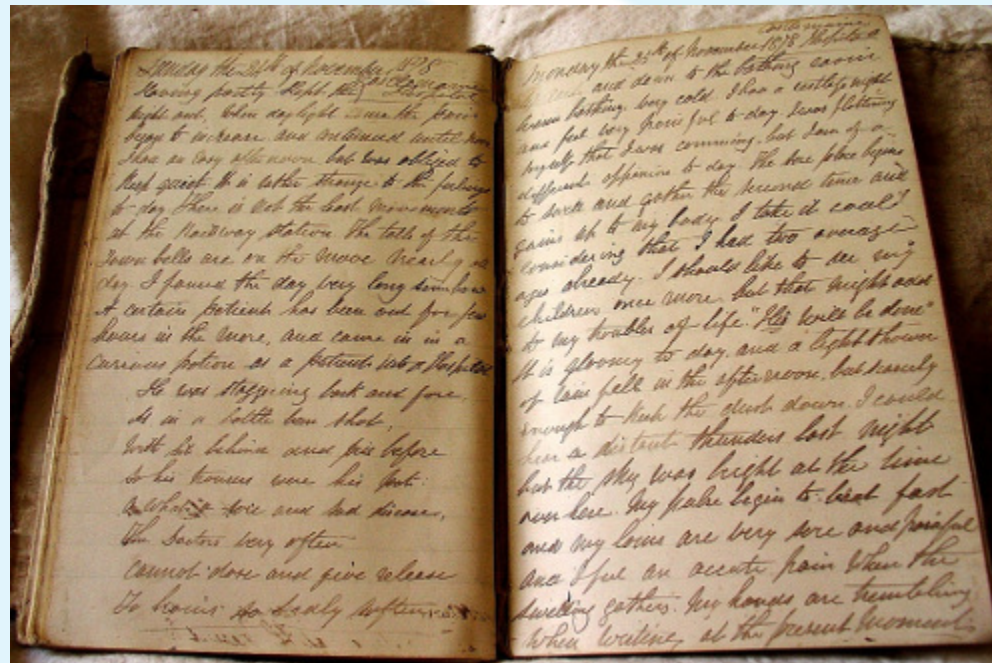 Sunday the 24th of November 1878
Castlemaine Hospital
Having partly slept the
night out, when daylight came the pain
began to increase and continued until noon
I had an easy afternoon but was obliged to
keep quiet. It is rather strange to the feelings
to day there is not the least movements
at the Railway station the of the
Town bells are on the move nearly all
day. I passed the day very long somehow
A certain patient has been out for few
hours in the more, and came in in a
curious potion as a patient into a Hospital
He was staggering back and fore
As in a bottle been shot,
With six behind and five before
So his were his
and sad disease,
The Doctors very often
cannot dose and give release
To so badly
Castlemaine
Monday the 25th of November 1878 Hospital
and down to the bathing room
bathing very cold I had a restless night
and feel very painful to day. I was flattering
myself that I was comming, but I am of a
different oppinion to day. The sore place begins
to and gather the second time and
pains all to my body I take it cool
considering that I had two average
ages already. I should like to see my
children once more, but that might add
to my troubles of life. "His will be done"
It is gloomy to day, and a light shower
of rain fell in the afternoon, but scarcely
enough to keep the dust down. I could
hear a distent thunders last night
but the sky was bright at the time
over here. My pulse begin to beat fast
and my loins are very sore and painful
and I feel an accute pain when the
swelling gathers. My hands are trembling
when writing at the present moments